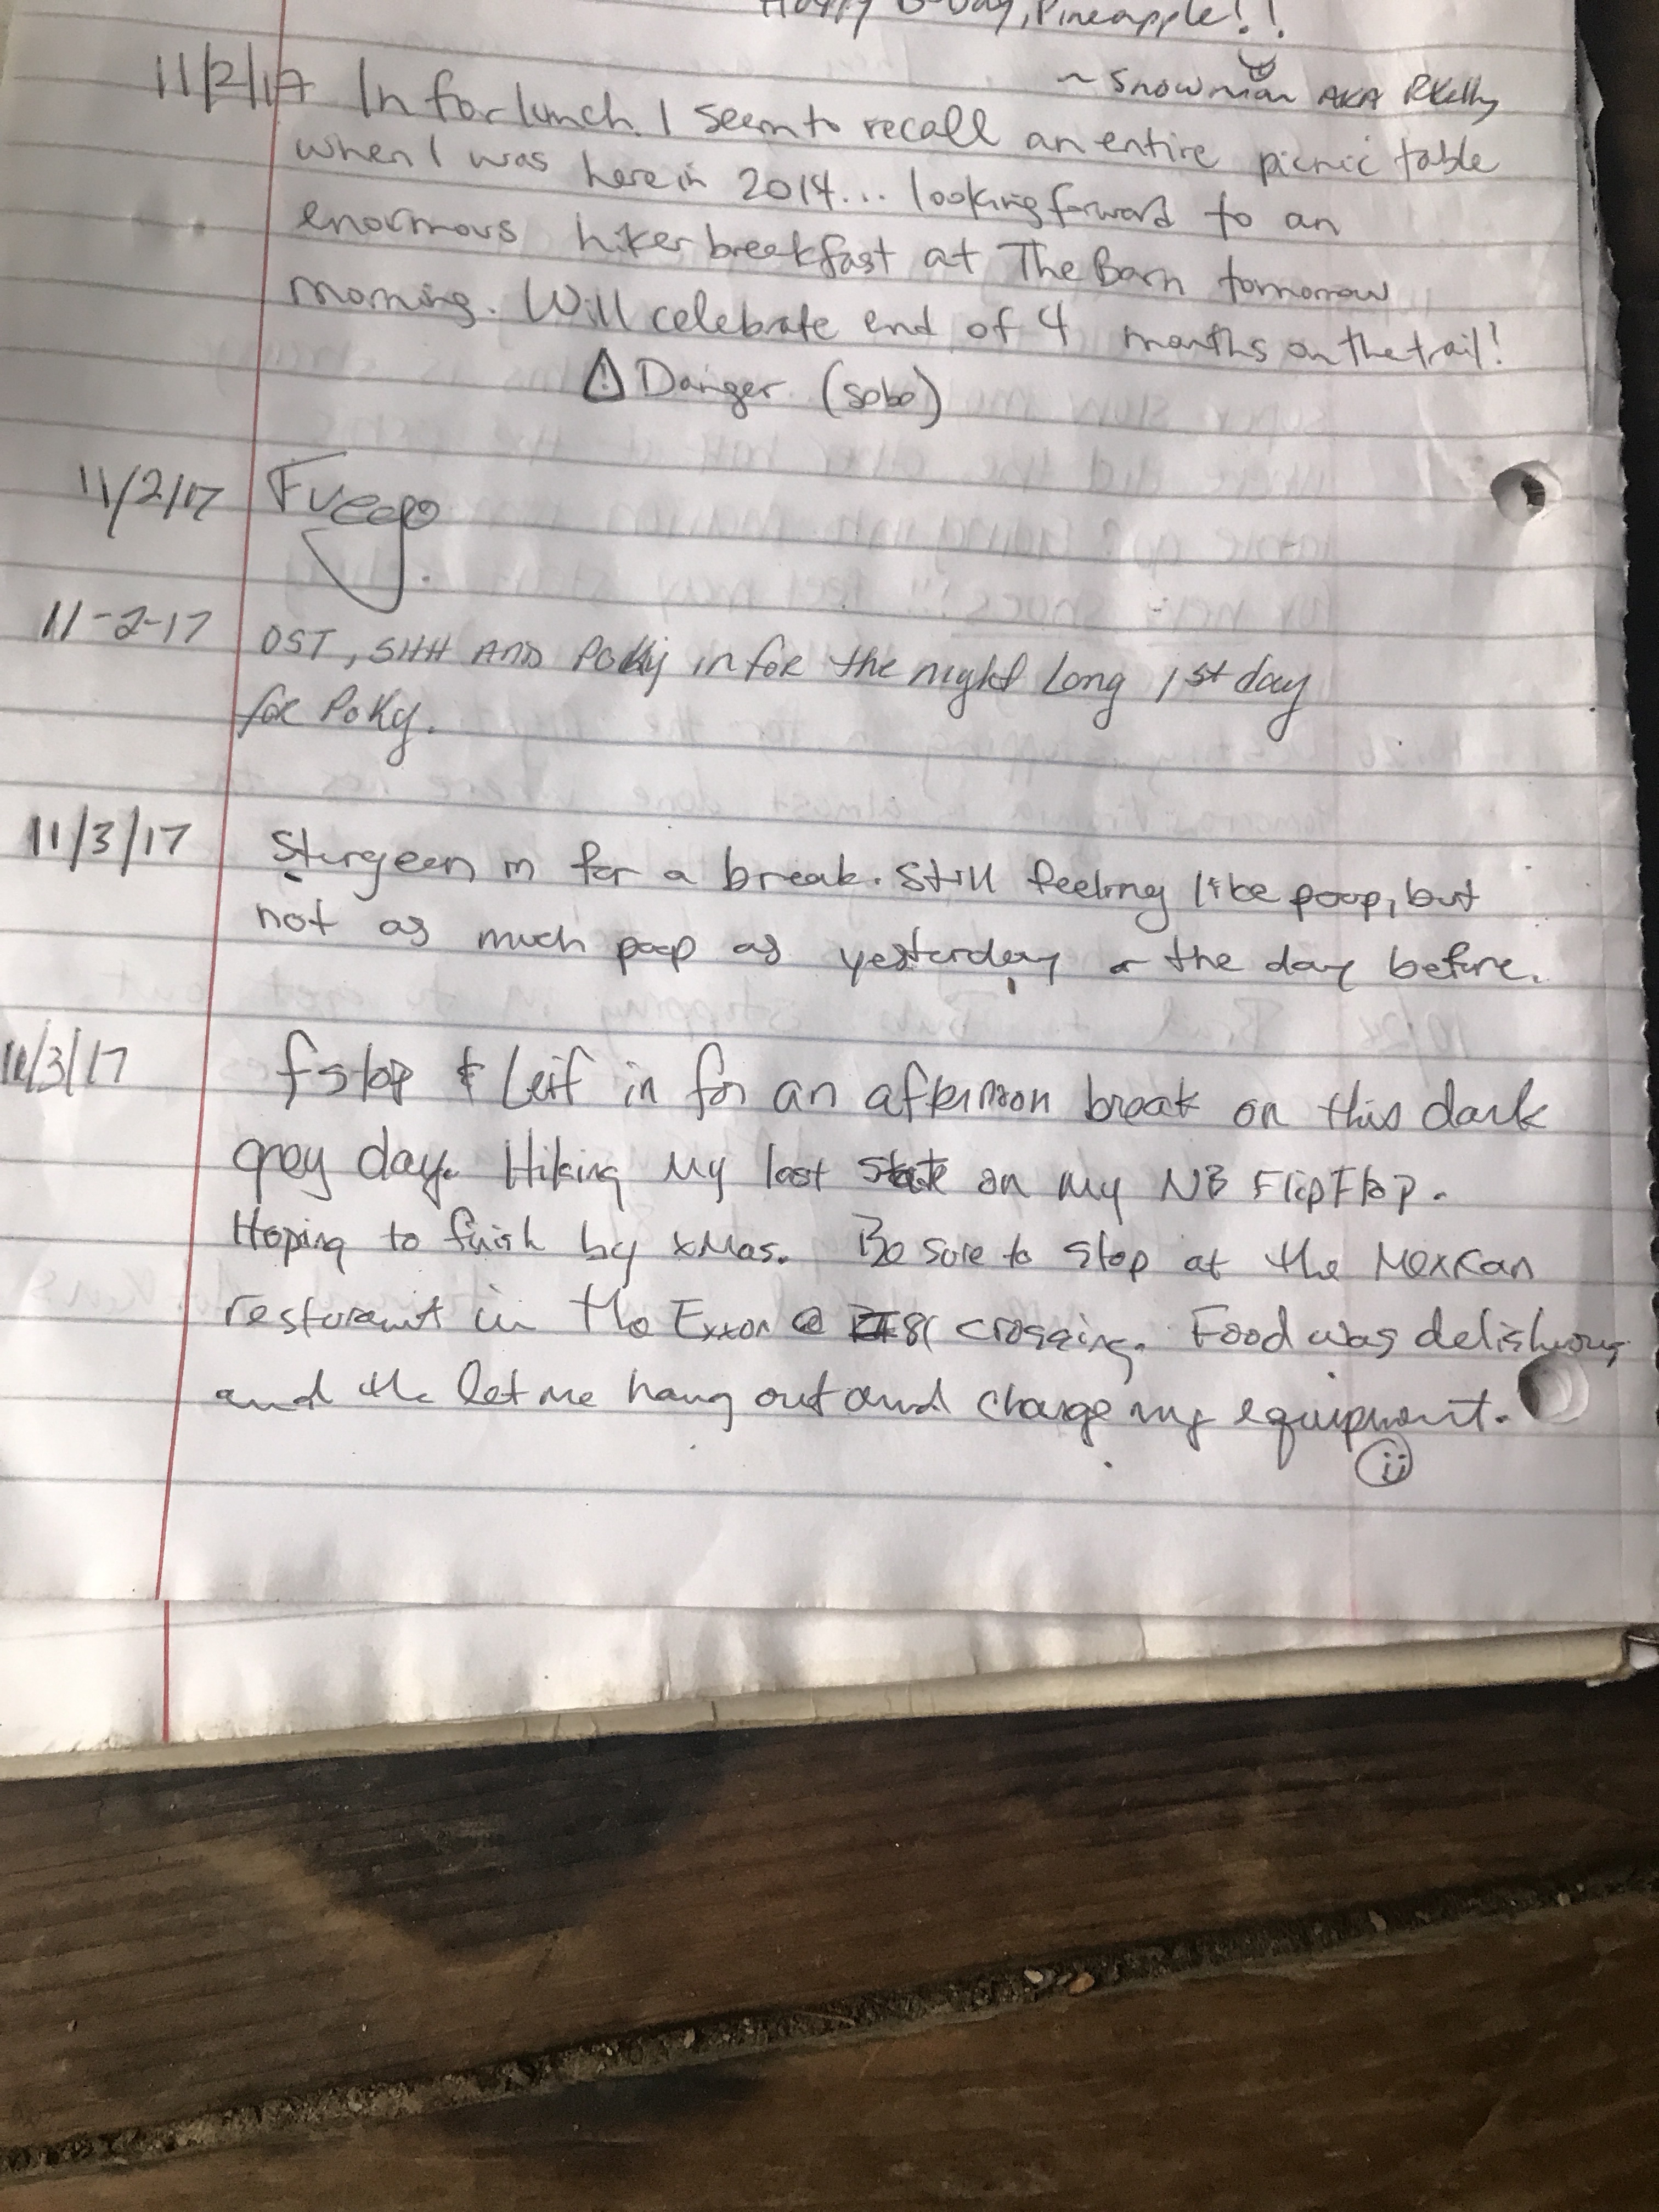 Happy B-Day, Pineapple!!
~ Snowman AKA RKelly
11/2/17 In for lunch. I seem to recall an entire picnic table
when I was here in 2014... looking forward to an
enormous hiker breakfast at The Barn tomorrow
morning. Will celebrate end of 4 months on the trail!
Danger (sobo)
11/2/17 Fuego
11-2-17 OST, SHH AND Poky in for the night Long 1st day
for Poky.
11/3/17 Sturgeon in for a break. Still feeling like poop, but
not as much poop as yesterday or the day before.
11/3/17 fstop & Leif in for an afternoon break on this dark
grey day. Hiking my last state on my NB FlipFlop.
Hoping to finish by xMas. Be sure to stop at the Mexican
resturant in the Exxon @ I81 crossing. Food was delishious
and the let me hang out and charge my equipment.